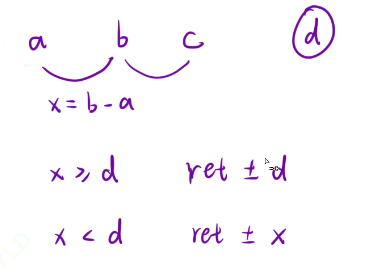 a b c d
x = b - a
x ≥ d ret ± d
x < d ret ± x